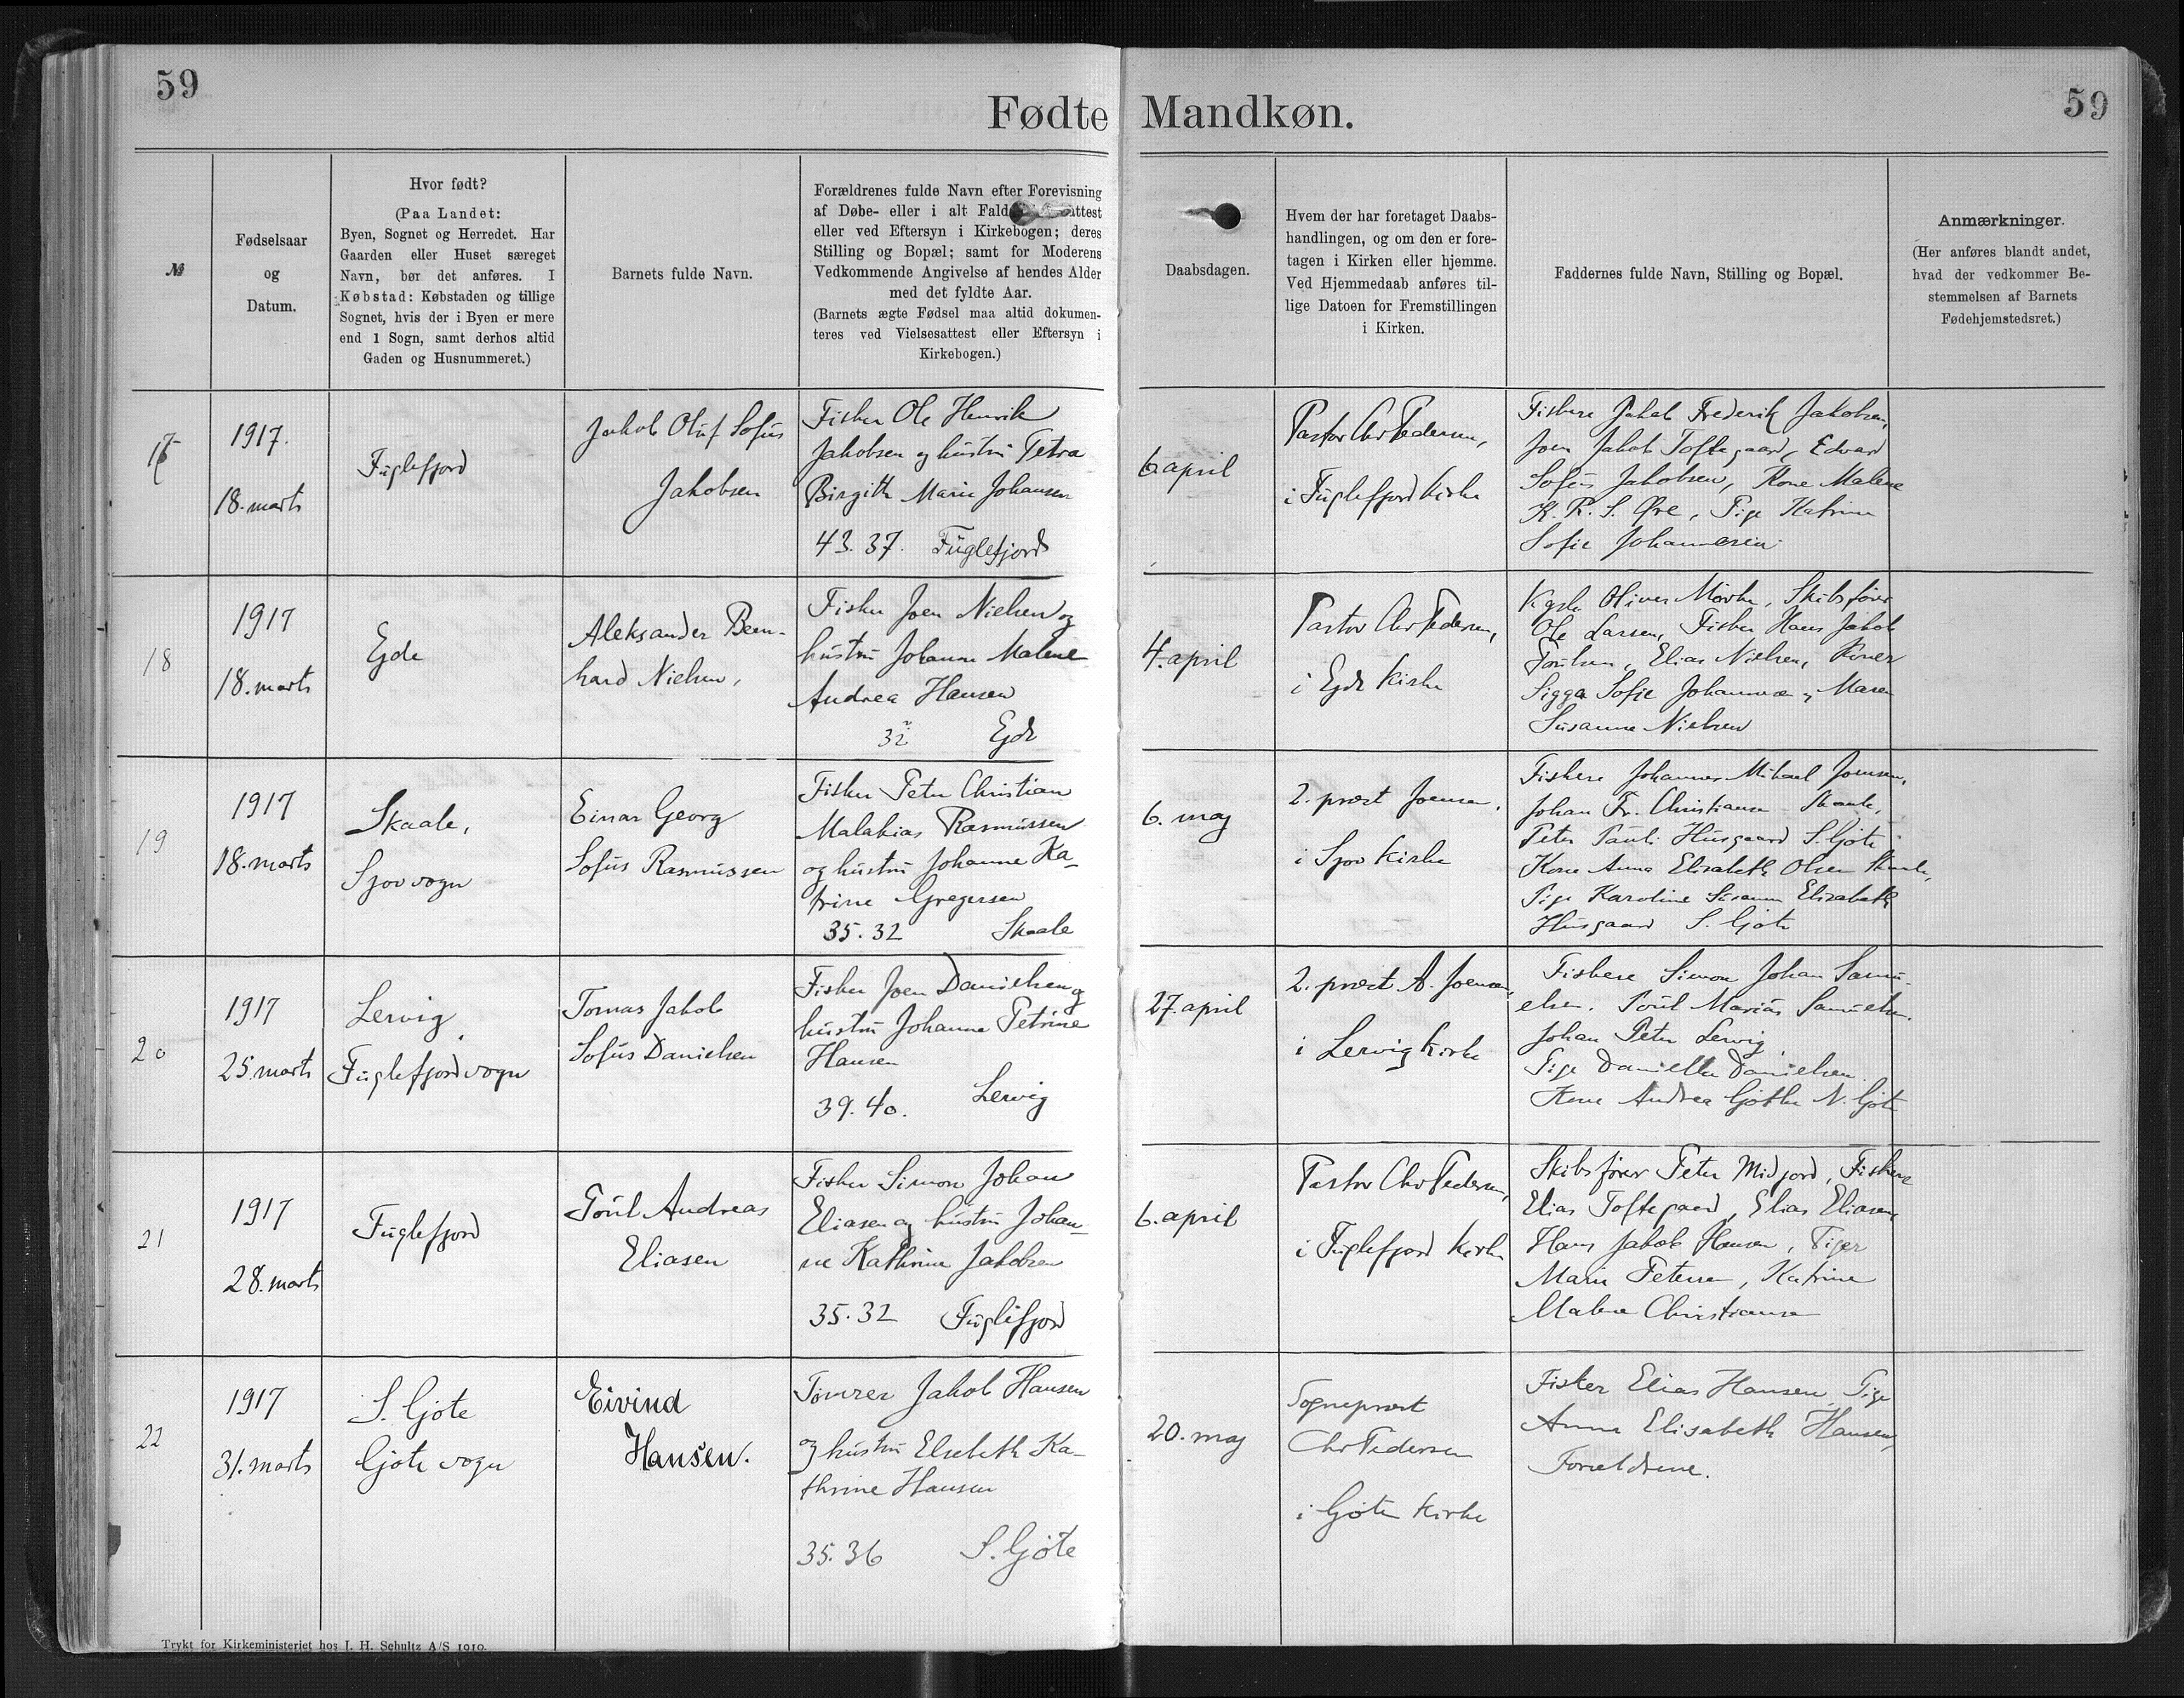 59
Fødte Mandkøn.
59
№
Fødselsaar
og
Datum.
Hvor født?
(Paa Landet:
Byen, Sognet og Herredet. Har
Gaarden eller Huset særeget
Navn, bør det anføres. I
Købstad: Købstaden og tillige
Sognet, hvis der i Byen er mere
end 1 Sogn, samt derhos altid
Gaden og Husnummeret.)
Barnets fulde Navn.
Forældrenes fulde Navn efter Forevisning
af Døbe- eller i alt Fald
eller ved Eftersyn i Kirkebogen; deres
Stilling og Bopæl; samt for Moderens
Vedkommende Angivelse af hendes Alder
med det fyldte Aar.
(Barnets ægte Fødsel maa altid dokumen-
teres ved Vielsesattest eller Eftersyn i
Kirkebogen.)
Daabsdagen.
Hvem der har foretaget Daabs-
handlingen, og om den er fore-
tagen i Kirken eller hjemme.
Ved Hjemmedaab anføres til-
lige Datoen for Fremstillingen
i Kirken.
Faddernes fulde Navn, Stilling og Bopæl.
Anmærkninger.
(Her anføres blandt andet,
hvad der vedkommer Be-
stemmelsen af Barnets
Fødehjemstedsret.)
17
1917.
18. marts
Fuglefjord
Jakob Oluf Sofus
Jakobsen
Fisker Ole Henrik
Jakobsen og hustru Petra
Birgith Marie Johansen
43. 37. Fuglefjord
6. april
Pastor Chr Pedersen,
i Fuglefjord kirke
Fiskere Jakob Frederik Jakobsen,
Joen Jakob Toftegaard, Edvard
Sofus Jakobsen, Kone Malene
K. R. S. Øre, Pige Katrine
Sofie Johannesen
18
1917
18. marts
Ejde
Aleksander Bern-
hard Nielsen,
Fisker Joen Nielsen og
hustru Johanne Malene
Andrea Hansen
32 Ejde
4. april
Pastor Chr Pedersen,
i Ejde kirke
Oliver Mörke, Skibsfører
Ole Larsen, Fisker Hans Jakob
Poulsen, Elias Nielsen, Koner
Sigga Sofie Johannesen, Maren
Susanne Nielsen
19
1917
18. marts
Skaale,
Sjov sogn
Einar Georg
Sofus Rasmussen
Fisker Peter Christian
Malakias Rasmussen
og hustru Johanne Ka-
trine Gregersen
35. 32 Skaale
6. maj
2. præst Joensen,
i Sjov kirke
Fiskere Johannes Mikael Joensen,
Johan Fr. Christiansen Skaale,
Peter Pauli Husgaard S. Gjøte
Kone Anna Elisabeth Olsen Skaale,
Pige Karoline Susanne Elisabeth
Husgaard S. Gjøte
20
1917
25. marts
Lervig,
Fuglefjord sogn
Tomas Jakob
Sofus Danielsen
Fisker Joen Danielsen og
hustru Johanne Petrine
Hansen
39. 40. Lervig
27. april
2. præst A. Joensen,
i Lervig kirke
Fiskere Simon Johan Samu-
elsen, Poul Marius Samuelsen.
Johan Peter Lervig
Pige Daniella Danielsen
Kone Andrea Gjøthe N. Gjøte
21
1917
28. marts
Fuglefjord
Poul Andreas
Eliasen
Fisker Simon Johan
Eliasen og hustru Johan-
ne Kathrine Jakobsen
35. 32 Fuglefjord
6. april
Pastor Chr Pedersen,
i Fuglefjord kirke
Skibsfører Peter Midjord, Fiskere
Elias Toftegaard, Elias Eliasen,
Hans Jakob Hansen, Piger
Marie Petersen, Katrine
Malene Christiansen
22
1917
31. marts
S. Gjøte
Gjøte sogn
Eivind
Hansen.
Tømrer Jakob Hansen
og hustru Elsebeth Ka-
thrine Hansen
35. 36 S. Gjøte
20. maj
Sognepræst
Chr Pedersen
i Gjøte kirke
Fisker Elias Hansen, Pige
Anna Elisabeth Hansen,
Forældrene.
Trykt for Kirkeministeriet hos J. H. Schultz A/S 1910.